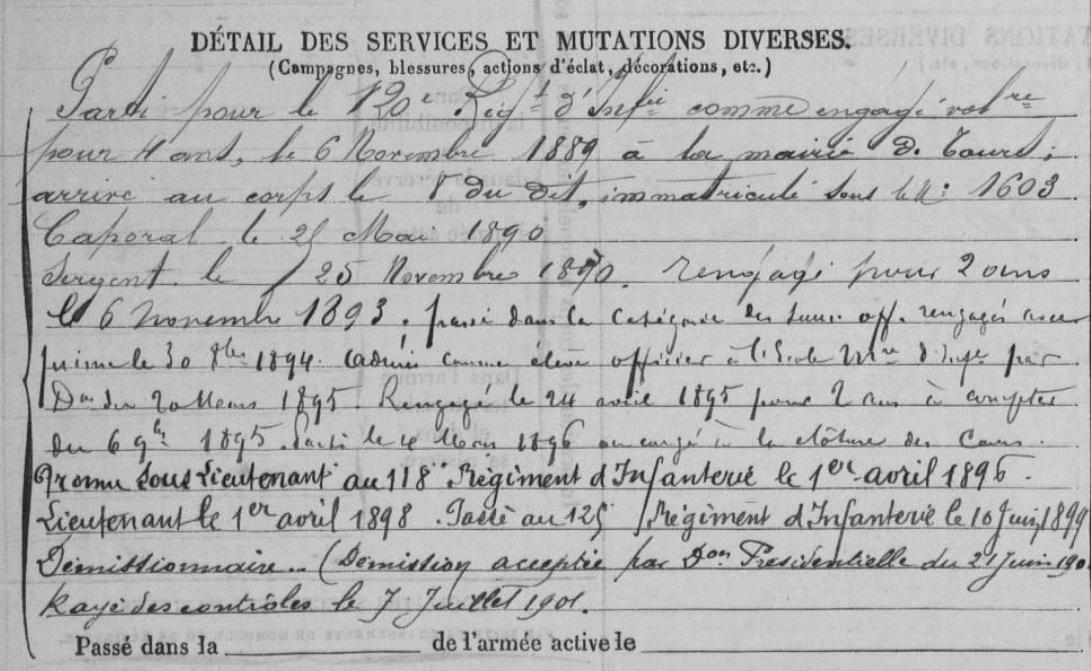 DÉTAIL DES SERVICES ET MUTATIONS DIVERSES.
(Campagnes, blessures, actions d'éclat, décorations, etc.)
Parti pour le 120e Régt d'Infie comme engagé volre
pour 4 ans, le 6 Novembre 1889 à la mairie de Tours;
arrivé au corps le du dit, immatriculé sous le No: 1603
Caporal le 25 Mai 1890
Sergent le 25 Novembre 1890. rengagé pour 2 ans
le 6 novembre 1893. passé dans la catégorie des sous off. rengagés avec
prime le 30 8bre 1894. admis comme élève officier à l'Ecole Mre d'Infie par
Don du 20 Mars 1895. Rengagé le 24 avril 1895 pour 2 ans à compter
du 6 9bre 1895. Parti le 4 Mars 1896 en congé à la clôture des Cours.
Promu Sous Lieutenant au 118e Régiment d'Infanterie le 1er avril 1896.
Lieutenant le 1er avril 1898. Passé au 125 Régiment d'Infanterie le 10 Juin 1899
Démissionnaire.. (Démission acceptée par Don Présidentielle du 21 Juin 190
Rayé des contrôles le 7 Juillet 1901.
Passé dans la de l'armée active le